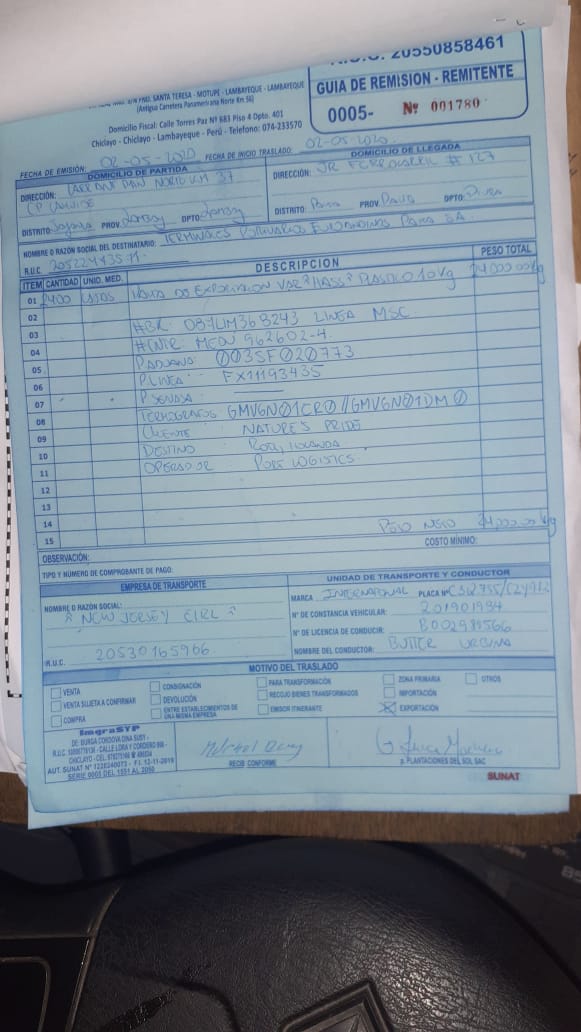 R.U.C. 20550858461
FND. SANTA TERESA - MOTUPE - LAMBAYEQUE - LAMBAYEQUE
(Antigua Carretera Panamericana Norte Km 56)
Domicilio Fiscal: Calle Torres Paz Nº 683 Piso 4 Dpto. 401
Chiclayo - Chiclayo - Lambayeque - Perú - Telefono: 074-233570
GUIA DE REMISION - REMITENTE
0005- Nº 001780
FECHA DE EMISIÓN: 02-05-2020 FECHA DE INICIO TRASLADO: 02-05-2020
DOMICILIO DE PARTIDA
DIRECCIÓN: PAN NORTE KM 37
DISTRITO: PROV. DPTO:
DOMICILIO DE LLEGADA
DIRECCIÓN: JR FERROCARRIL # 127
DISTRITO: Paita PROV. Paita DPTO: Piura
NOMBRE O RAZÓN SOCIAL DEL DESTINATARIO: TERMINALES PORTUARIOS EUROANDINOS PAITA SA
R.U.C.
ITEM CANTIDAD UNID. MED. DESCRIPCION PESO TOTAL
01 2400 CAJAS PALTA DE EXPORTACION VAR "HASS" PLASTICO 10Kg 24000.00 Kg
02
03 #BK: 087LIM368243 LINEA MSC
04 #CNTR: MEDU 962602-4
05 P.ADUANA: 0035F020773
06 P.LINEA: FX11193435
07 P SENASA:
08 TERMOGRAFOS GMVGN01CR0 // GMVGN01DM0
09 CLIENTE: NATURE'S PRIDE
10 DESTINO: ROTT, HOLANDA
11 OPERADOR: PORT LOGISTICS
12
13
14
15 PESO NETO 24000.00 Kg
OBSERVACIÓN: COSTO MÍNIMO:
TIPO Y NÚMERO DE COMPROBANTE DE PAGO:
EMPRESA DE TRANSPORTE
NOMBRE O RAZÓN SOCIAL:
" NEW JERSEY EIRL "
R.U.C. 20530165966
UNIDAD DE TRANSPORTE Y CONDUCTOR
MARCA INTERNATIONAL PLACA Nº
Nº DE CONSTANCIA VEHICULAR: 201901984
Nº DE LICENCIA DE CONDUCIR:
NOMBRE DEL CONDUCTOR: BUTTER URBINA
MOTIVO DEL TRASLADO
VENTA CONSIGNACIÓN PARA TRANSFORMACIÓN ZONA PRIMARIA OTROS
VENTA SUJETA A CONFIRMAR DEVOLUCIÓN RECOJO BIENES TRANSFORMADOS IMPORTACIÓN
COMPRA ENTRE ESTABLECIMIENTOS DE UNA MISMA EMPRESA EMISOR ITINERANTE EXPORTACIÓN
ImgraSYP
DE: BURGA CORDOVA DINA SUSY -
CHICLAYO
AUT. SUNAT Nº F.I. 12-11-2019
SERIE 0005 DEL 1551 AL 2050
RECIBI CONFORME
p. PLANTACIONES DEL SOL SAC
SUNAT